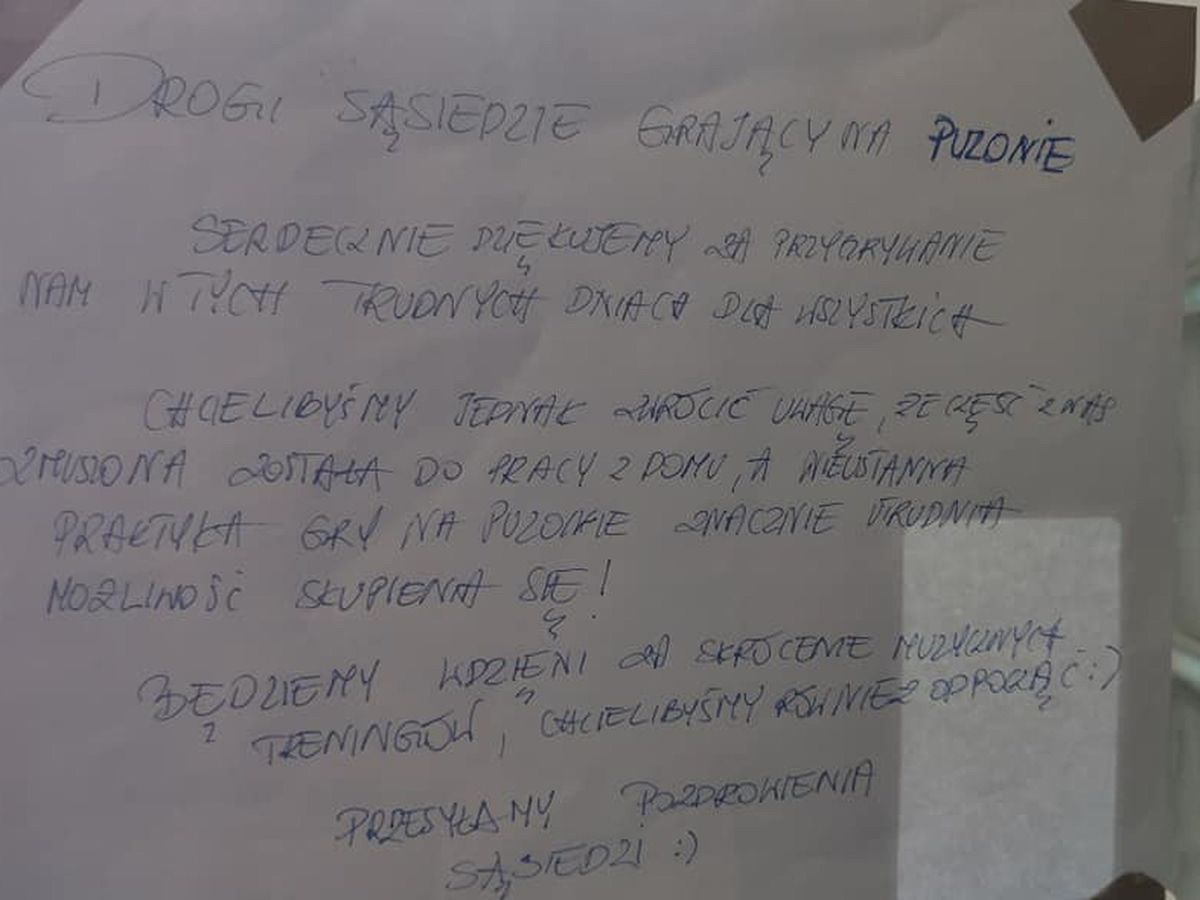 DROGI SĄSIEDZIE GRAJĄCY NA PUZONIE
SERDECZNIE DZIĘKUJEMY ZA PRZYGRYWANIE
NAM W TYCH TRUDNYCH DNIACH DLA WSZYSTKICH
CHCIELIBYŚMY JEDNAK ZWRÓCIĆ UWAGĘ, ŻE CZĘŚĆ Z NAS
ZMUSZONA ZOSTAŁA DO PRACY Z DOMU, A NIEUSTANNA
PRAKTYKA GRY NA PUZONIE ZNACZNIE UTRUDNIA
MOŻLIWOŚĆ SKUPIENIA SIĘ!
BĘDZIEMY WDZIĘNI ZA SKRÓCENIE MUZYCZNYCH
TRENINGÓW, CHCIELIBYŚMY RÓWNIEŻ ODPOCZĄĆ :)
PRZESYŁAMY POZDROWIENIA
SĄSIEDZI :)